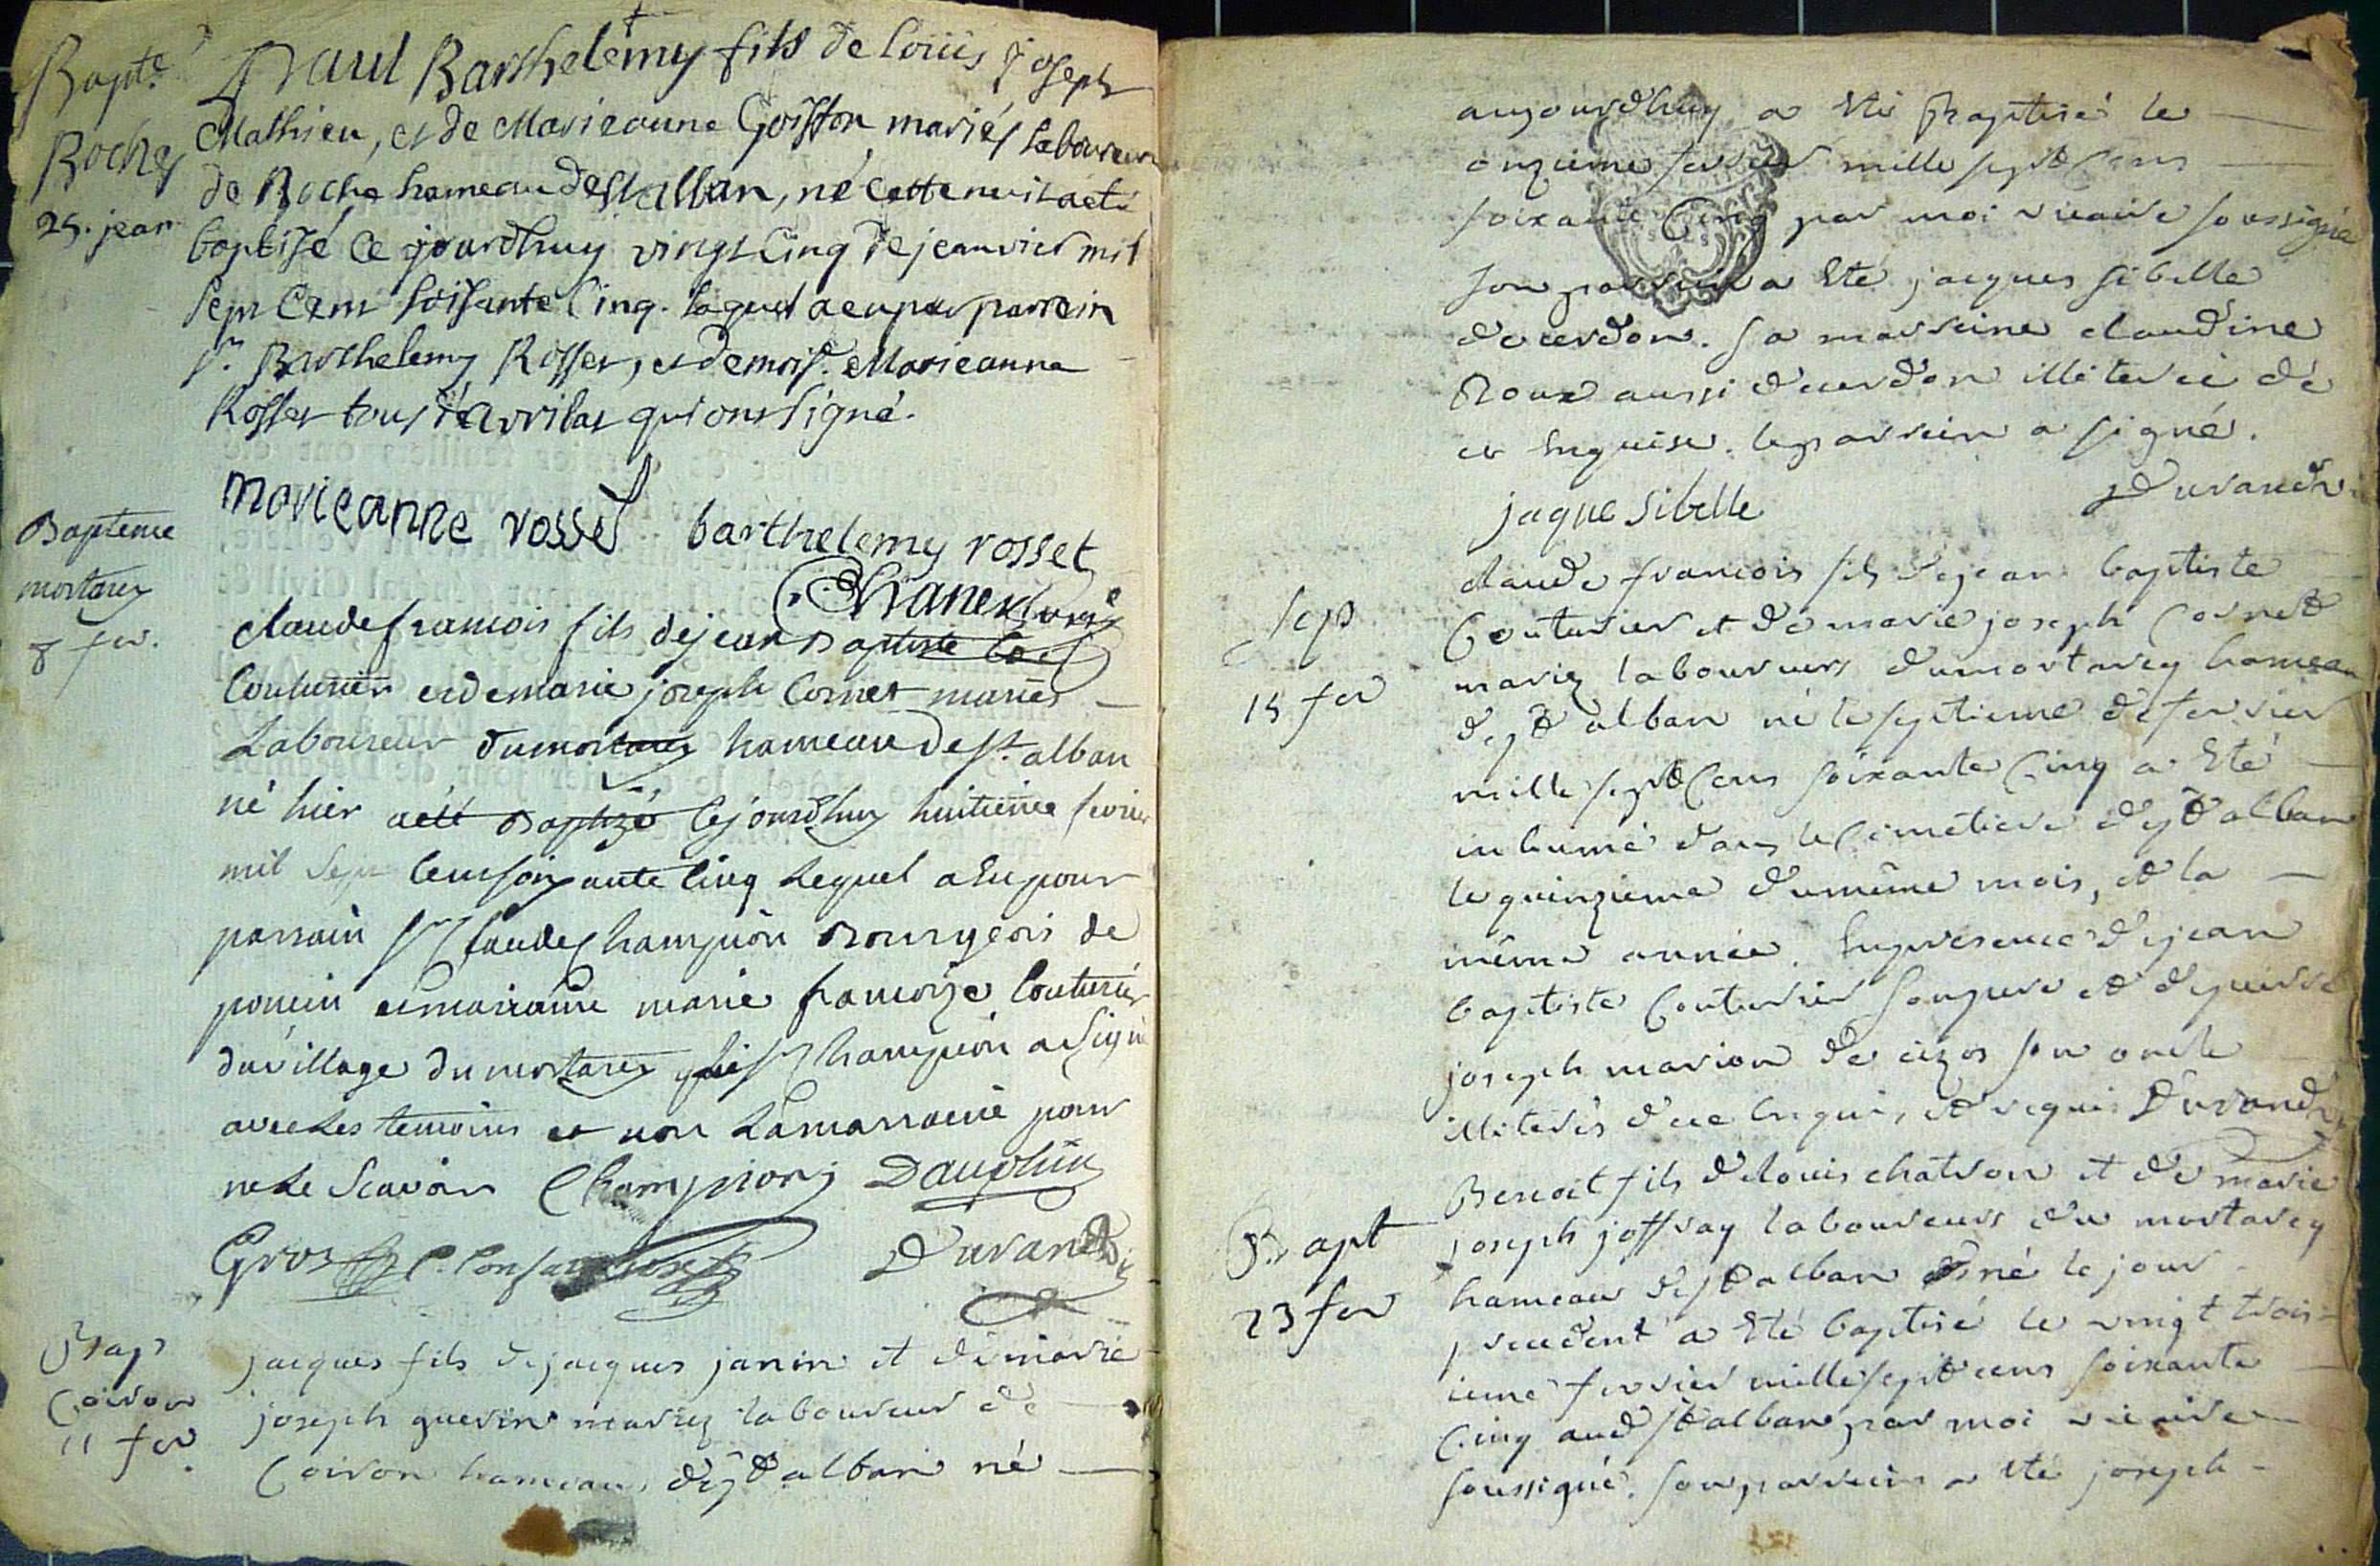 Bapt.e
Roche
25. jean.
Paul Barthelémy fils de loüis Joseph
Mathieu, et de Marieanne Goiffon mariés laboureur
de Roche hameau de st alban, né cette nuit a eté
baptisé ce jourdhuy vingt cinq de jeanvier mil
sept cent soisante cinq. lequel a eu par parrein
sr. Barthelemy Rosset, et demois. Marieanne
Rosset tous d'arvilas qui ont signé.
marieanne rosset barthelemy rosset
Bapteme
mortarey
8 fev.
claude francois fils de jean Baptiste
Couturier et de marie joseph Cornet mariés
Laboureur du mortarey hameau de st. alban
né hier a eté Baptizé cejourdhuy huitieme fevrier
mil Sept Cent soixante cinq Lequel a Eu pour
parrain sr Claude Champion Bourgeois de
poncin et marraine marie francoize Couturier
du village du mortarey ledit sr Champion a Signé
avec Les temoins et non La marraine pour
ne Le Scavoir Champion Dauphin
Gros Durand
Bap
Coiron
11 fev
jacques fils de jacques janin et de marie
joseph guerin mariez laboureur de
Coiron hameau de st alban né
aujourdhuy a Eté Baptisé le
onzieme fevrier mille sept Cens
soixante Cinq par moi vicaire soussigné
son parrein a Eté jacques sibelle
de cerdon. sa marreine claudine
Roux aussi de cerdon illiterée de
ce Enquise. le parrein a signé.
jaque sibelle Durand
sep
15 fev
claude francois fils de jean baptiste
Couturier et de marie joseph Cornet
mariez laboureurs du mortarey hameau
de st alban né le septieme de fevrier
mille sept Cens soixante Cinq a Eté
inhumé dans le Cimetiere de st alban
le quinzieme du même mois, et la
même année. En presence de jean
baptiste Couturier son pere et de pierre
joseph marion de cizos son oncle
illiterés de ce Enquis, et requis Durand
Bapt
23 fev
Benoit fils de louis chatron et de marie
joseph joffray laboureurs du mortarey
hameau de st alban né le jour
precedent a Eté baptisé le vingt trois-
ieme fevrier mille sept cens soixante
Cinq aud st alban par moi vicaire
soussigné. son parrein a Eté joseph